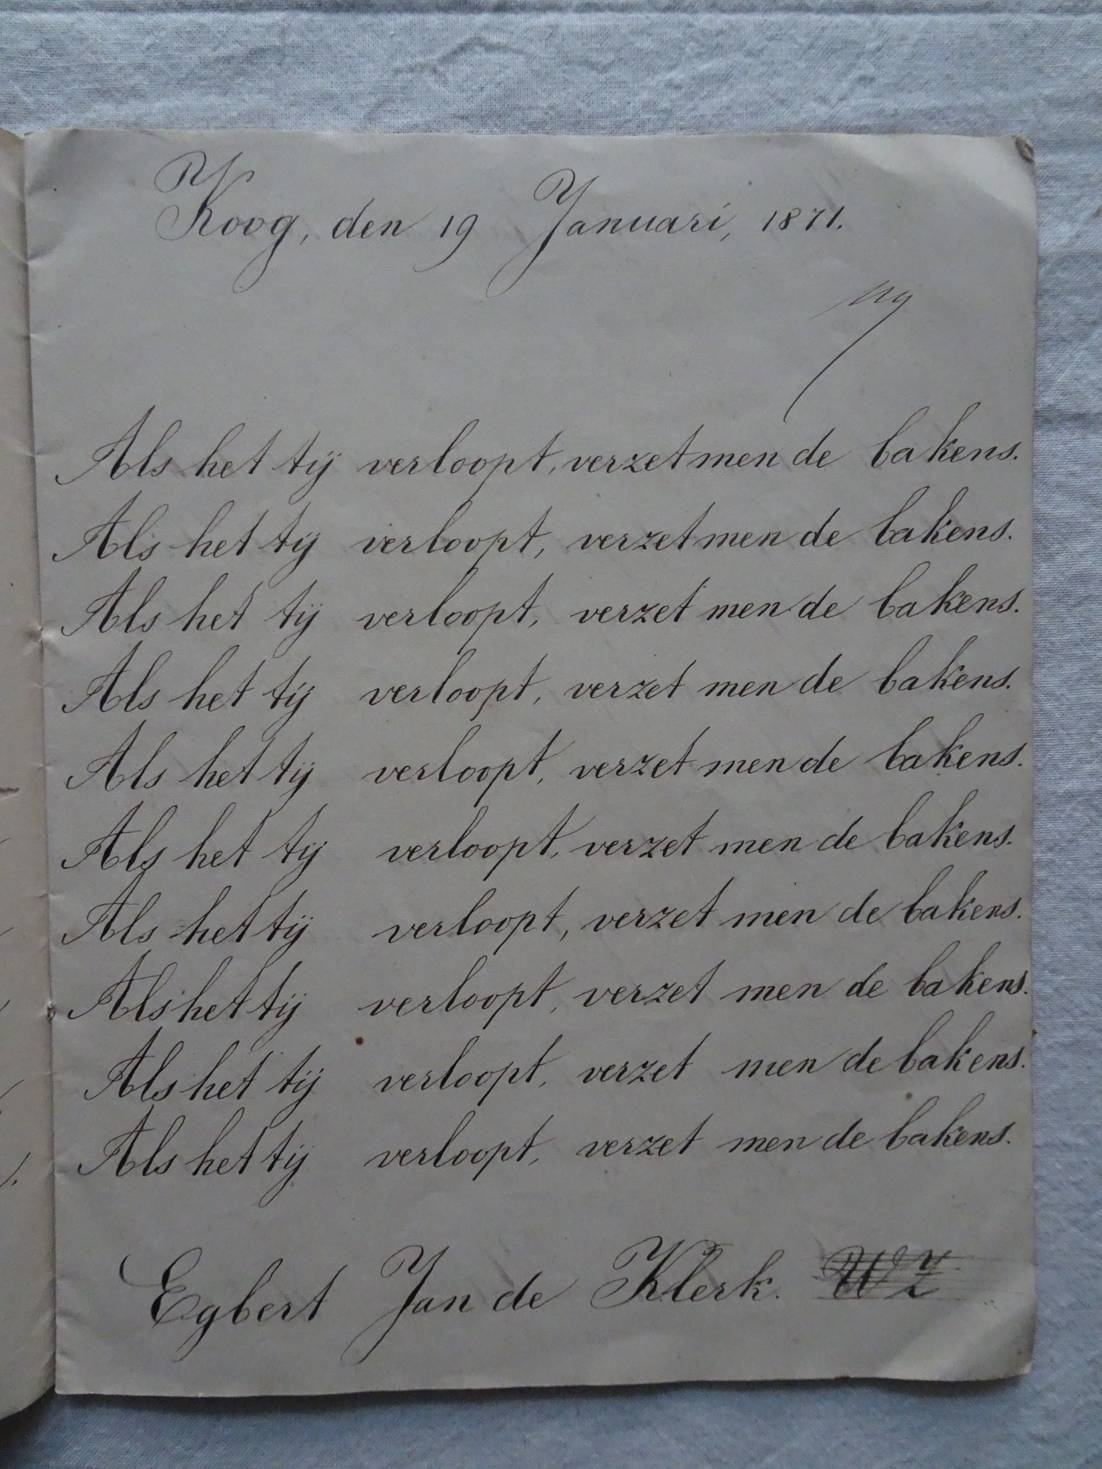 Koog, den 19 Januari, 1871.
Als het tij verloopt, verzet men de bakens.
Als het tij verloopt, verzet men de bakens.
Als het tij verloopt, verzet men de bakens.
Als het tij verloopt, verzet men de bakens.
Als het tij verloopt, verzet men de bakens.
Als het tij verloopt, verzet men de bakens.
Als het tij verloopt, verzet men de bakens.
Als het tij verloopt, verzet men de bakens.
Als het tij verloopt, verzet men de bakens.
Als het tij verloopt, verzet men de bakens.
Egbert Jan de Klerk.